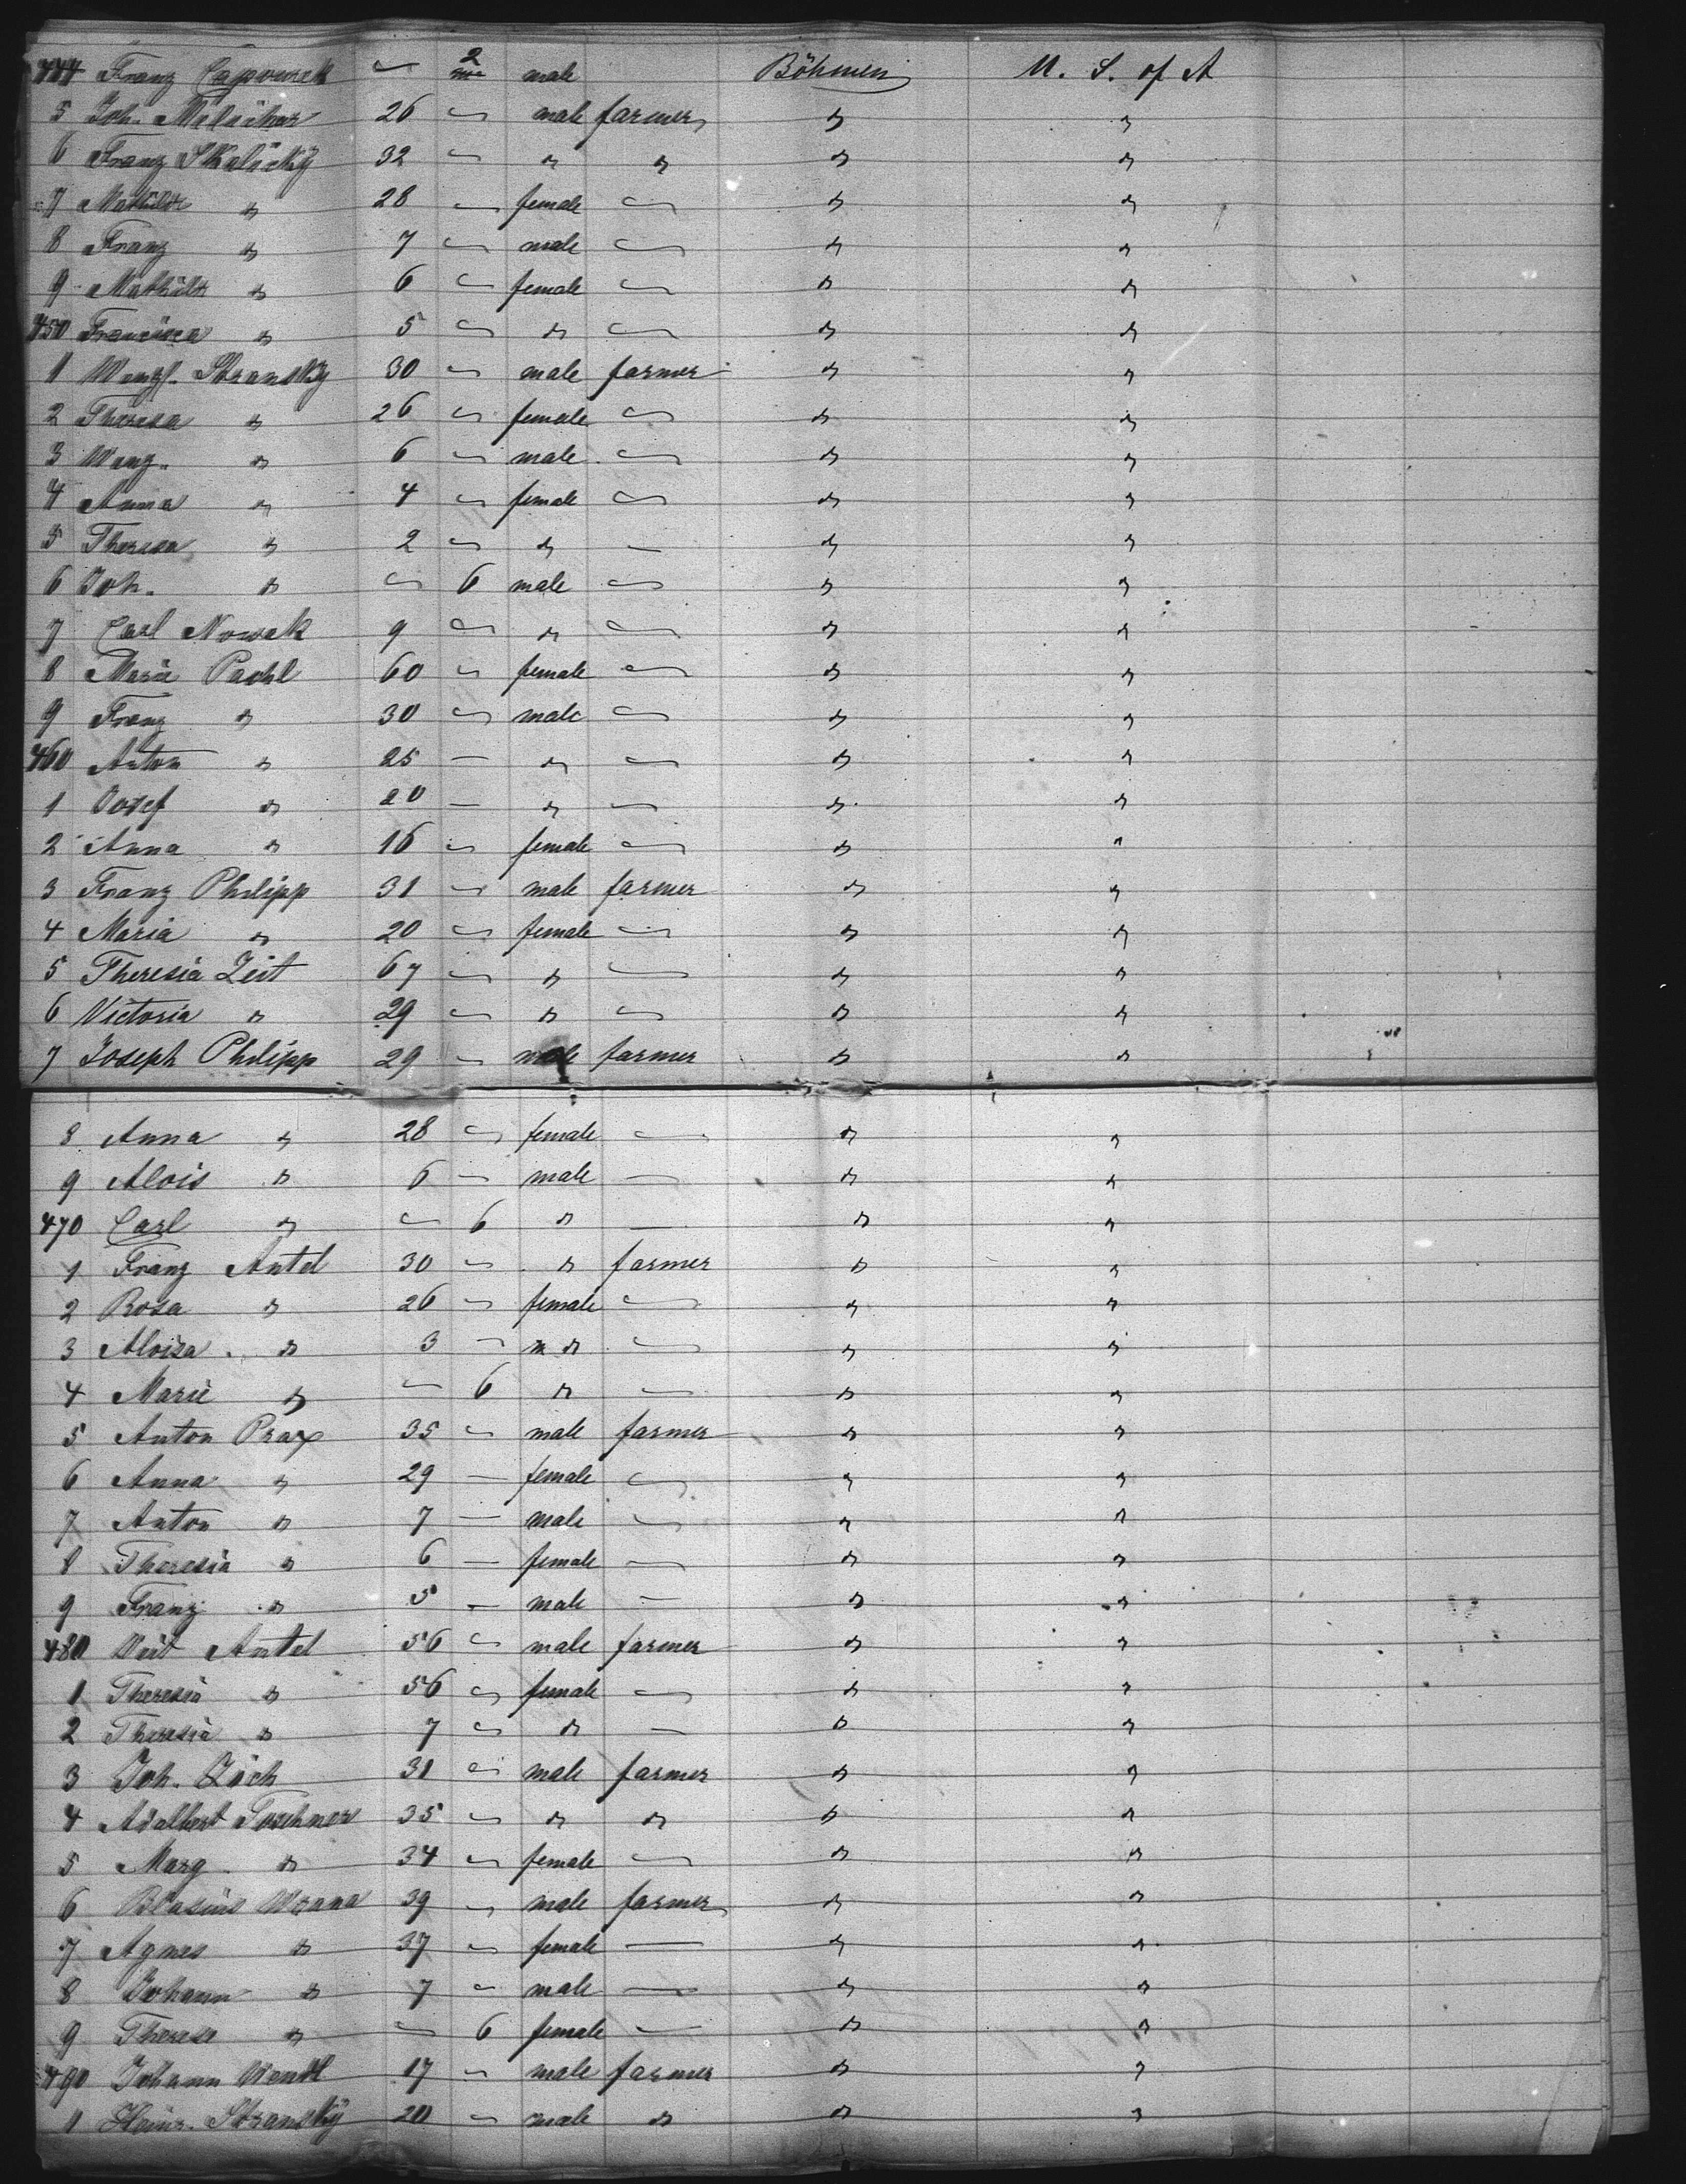 444 Franz Capourek — 2 mos male Böhmen U. S. of A
5 Joh. Melichar 26 — male farmer " "
6 Franz Skalicky 32 — " " " "
7 Mathilde " 28 — female — " "
8 Franz " 7 — male — " "
9 Mathilde " 6 — female — " "
450 Francisca " 5 — " — " "
1 Wenzl. Stransky 30 — male farmer " "
2 Theresa " 26 — female — " "
3 Wenz. " 6 — male — " "
4 Anna " 4 — female — " "
5 Theresa " 2 — " — " "
6 Joh. " — 6 male — " "
7 Carl Nowak 9 — " — " "
8 Marie Pachl 60 — female — " "
9 Franz " 30 — male — " "
460 Anton " 25 — " — " "
1 Josef " 20 — " — " "
2 Anna " 16 — female — " "
3 Franz Philipp 31 — male farmer " "
4 Maria " 20 — female — " "
5 Theresia Zeit 67 — " — " "
6 Victoria " 29 — " — " "
7 Joseph Philipp 29 — male farmer " "
8 Anna " 28 — female — " "
9 Alois " 6 — male — " "
470 Carl " — 6 " — " "
1 Franz Antel 30 — " farmer " "
2 Rosa " 26 — female — " "
3 Aloisa " 3 — " — " "
4 Marie " — 6 " — " "
5 Anton Prax 35 — male farmer " "
6 Anna " 29 — female — " "
7 Anton " 7 — male — " "
8 Theresia " 6 — female — " "
9 Franz " 5 — male — " "
480 Veit Antel 56 — male farmer " "
1 Theresia " 56 — female — " "
2 Theresia " 7 — " — " "
3 Joh. Zach 31 — male farmer " "
4 Adalbert 35 — " " " "
5 Marg. " 34 — female — " "
6 Blasius Wrana 39 — male farmer " "
7 Agnes " 37 — female — " "
8 Johann " 7 — male — " "
9 Therese " — 6 female — " "
490 Johann Wendl 17 — male farmer " "
1 Heinr. Stransky 20 — male " " "